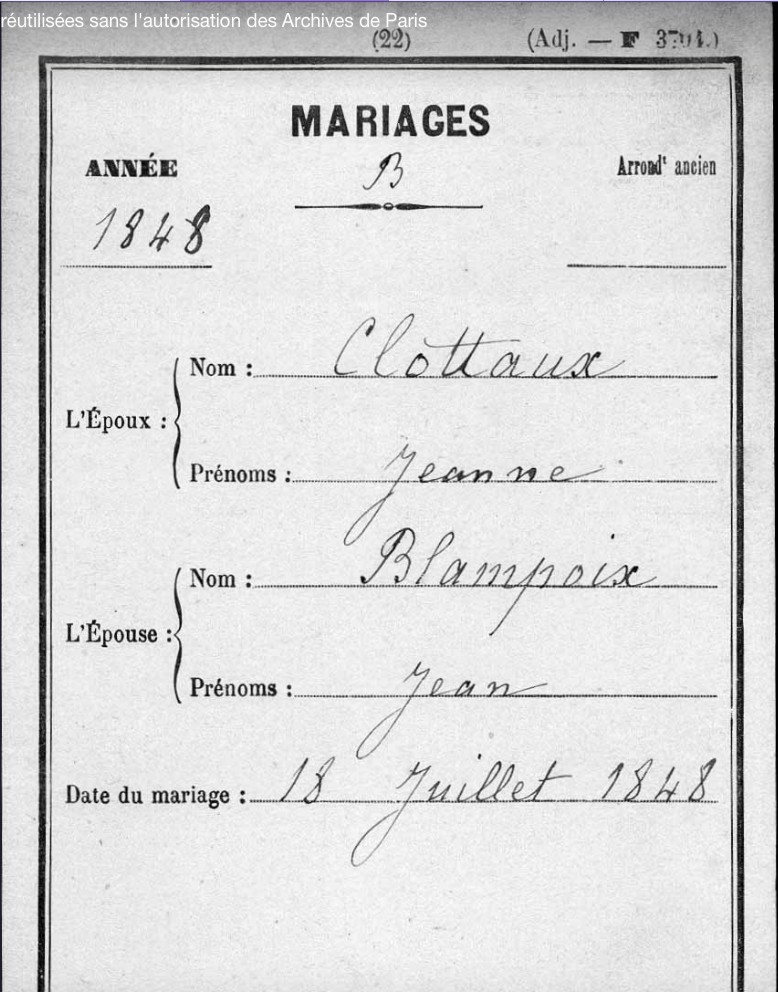 réutilisées sans l'autorisation des Archives de Paris
(22) (Adj. — F 3704.)
MARIAGES
ANNÉE B Arrondt ancien
1848
Nom : Clottaux
L'Époux :
Prénoms : Jeanne
Nom : Blampoix
L'Épouse :
Prénoms : Jean
Date du mariage : 18 Juillet 1848